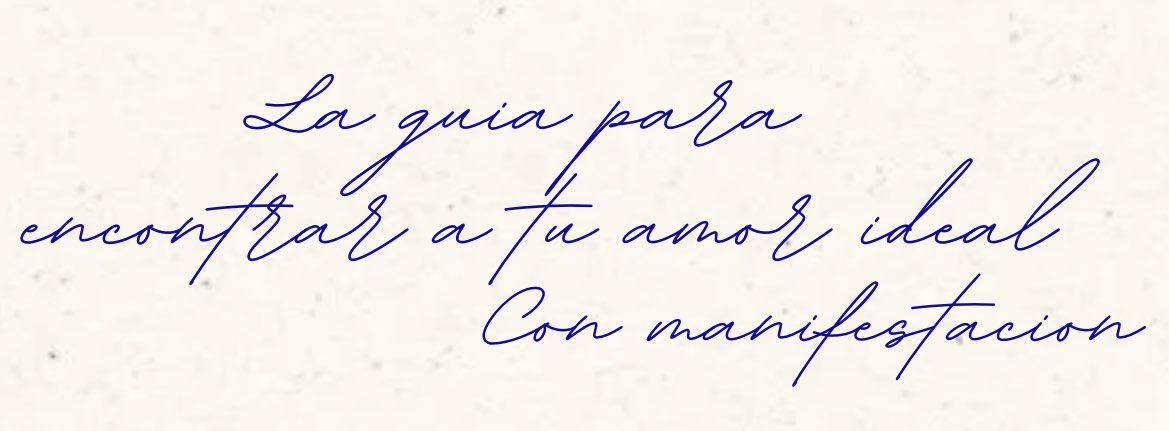 La guia para
encontrar a tu amor ideal
Con manifestacion